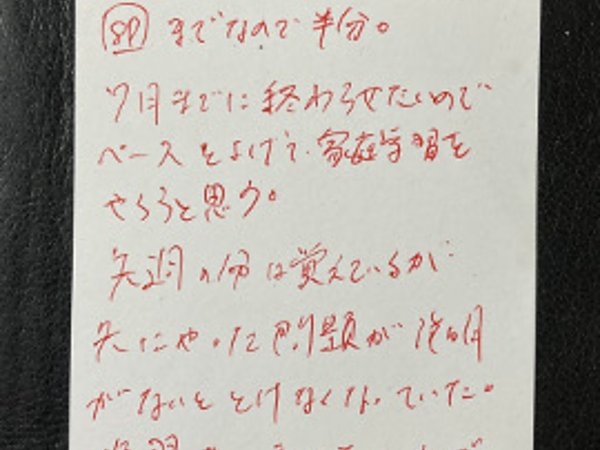 8P までなので半分。
7月までに終わらせたいので
ペースを上げて、家庭学習を
やろうと思う。
先週の分は覚えているが
先にやった問題が説明
がないととけなくなっていた。